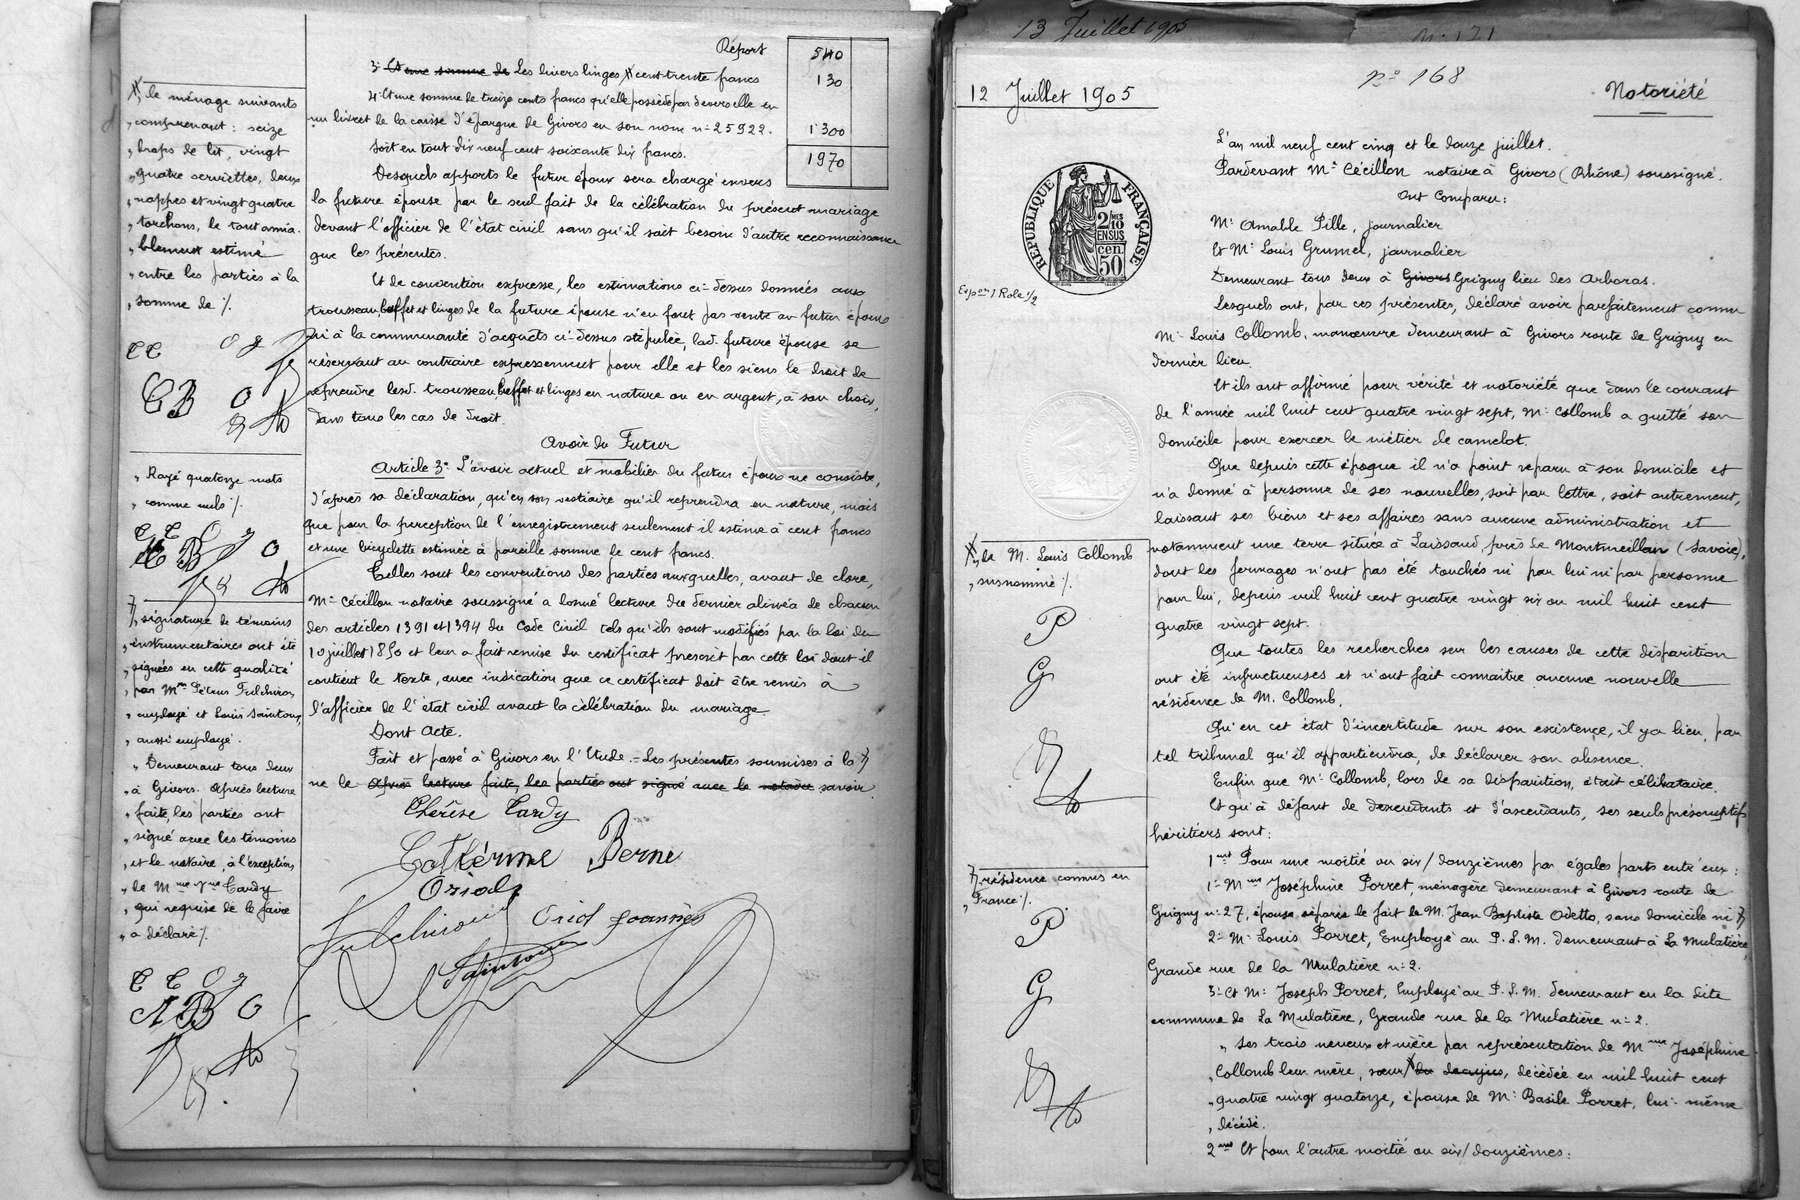 Report 540
3º Et une somme de Les divers linges X cent trente francs 130
4º Et une somme de treize cents francs qu'elle possède par devers elle en
un livret de la caisse d'épargne de Givors en son nom nº 25922. 1300
Soit en tout dix neuf cent soixante dix francs. 1970
Desquels apports le futur époux sera chargé envers
la future épouse par le seul fait de la célébration du présent mariage
devant l'officier de l'état civil sans qu'il soit besoin d'autre reconnaissance
que les présentes.
Et de convention expresse, les estimations ci-dessus données aux
trousseau, buffet et linges de la future épouse n'en font pas vente au futur époux
ni à la communauté d'acquêts ci-dessus stipulée, lad. future épouse se
réservant au contraire expressément pour elle et les siens le droit de
reprendre lesd. trousseau buffet et linges en nature ou en argent, à son choix,
dans tous les cas de droit.
Avoir du Futur
Article 3º L'avoir actuel et mobilier du futur époux ne consiste,
d'après sa déclaration, qu'en son vestiaire qu'il reprendra en nature, mais
que pour la perception de l'enregistrement seulement il estime à cent francs
et une bicyclette estimée à pareille somme de cent francs.
Telles sont les conventions des parties auxquelles, avant de clore,
Mº Cécillon notaire soussigné a donné lecture du dernier alinéa de chacun
des articles 1391 et 1394 du Code Civil tels qu'ils sont modifiés par la loi du
10 juillet 1850 et leur a fait remise du certificat prescrit par cette loi dont il
contient le texte, avec indication que ce certificat doit être remis à
l'officier de l'état civil avant la célébration du mariage.
Dont Acte.
Fait et passé à Givors en l'Etude. = Les présentes soumises à la
ne le Après lecture faite, les parties ont signé avec le notaire savoir
Thérèse Tardy
Cathérine Berne
Oriol
Fulchiron Oriol Joannès
Saintoux
X le ménage suivants
„ comprenant : seize
„ draps de lit, vingt
„ quatre serviettes, deux
„ nappes et vingt quatre
„ torchons, le tout amia-
„ blement estimé
„ entre les parties à la
„ somme de %.
„ Rayé quatorze mots
„ comme nuls %.
„ signature de témoins
„ instrumentaires ont été
„ signées en cette qualité
„ par Mrs Pétrus Fulchiron,
„ employé et Louis Saintoux,
„ aussi employé.
„ Demeurant tous deux
„ à Givors. Après lecture
„ faite, les parties ont
„ signé avec les témoins
„ et le notaire, à l'exception
„ de Mme Vve Tardy
„ qui requise de le faire
„ a déclaré %.
13 Juillet 1905
Nº 171
12 Juillet 1905
Nº 168
Notoriété
RÉPUBLIQUE FRANÇAISE
2/10 EN SUS
50 cen.
Expon 1 Role 1/2
L'an mil neuf cent cinq et le douze juillet.
Pardevant Mº Cécillon notaire à Givors (Rhône) soussigné.
Ont Comparu :
Mr Amable Pille, journalier
Et Mr Louis Grumel, journalier
Demeurant tous deux à Givors Grigny lieu des Arboras.
Lesquels ont, par ces présentes, déclaré avoir parfaitement connu
Mr Louis Collomb, manœuvre demeurant à Givors route de Grigny en
dernier lieu.
Et ils ont affirmé pour vérité et notoriété que dans le courant
de l'année mil huit cent quatre vingt sept, Mr Collomb a quitté son
domicile pour exercer le métier de camelot.
Que depuis cette époque il n'a point reparu à son domicile et
n'a donné à personne de ses nouvelles, soit par lettre, soit autrement,
laissant ses biens et ses affaires sans aucune administration et
notamment une terre située à Laissaud, près de Montmeillan (Savoie),
dont les fermages n'ont pas été touchés ni par lui ni par personne
pour lui, depuis mil huit cent quatre vingt six ou mil huit cent
quatre vingt sept.
Que toutes les recherches sur les causes de cette disparition
ont été infructueuses et n'ont fait connaitre aucune nouvelle
résidence de M. Collomb.
Qu'en cet état d'incertitude sur son existence, il y a lieu, par
tel tribunal qu'il appartiendra, de déclarer son absence.
Enfin que Mr Collomb, lors de sa disparition, était célibataire.
Et qu'à défaut de descendants et d'ascendants, ses seuls présomptifs
héritiers sont :
1ment Pour une moitié ou six/douzièmes par égales parts entr'eux :
1º Mme Joséphine Porret, ménagère demeurant à Givors route de
Grigny nº 27, épouse séparée de fait de M. Jean Baptiste Odetto, sans domicile ni
2º Mr Louis Porret, Employé au P.L.M. demeurant à La Mulatière,
Grande rue de la Mulatière nº 2.
3º Et Mr Joseph Porret, Employé au P.L.M. demeurant en la dite
commune de La Mulatière, Grande rue de la Mulatière nº 2.
„ Ses trois neveux et nièce par représentation de Mme Joséphine
„ Collomb leur mère, sœur X du decujus, décédée en mil huit cent
„ quatre vingt quatorze, épouse de Mr Basile Porret, lui-même
„ décédé.
2ment Et pour l'autre moitié ou six/douzièmes :
X „ de M. Louis Collomb
„ susnommé %.
P
G
„ résidence connus en
„ France %.
P
G